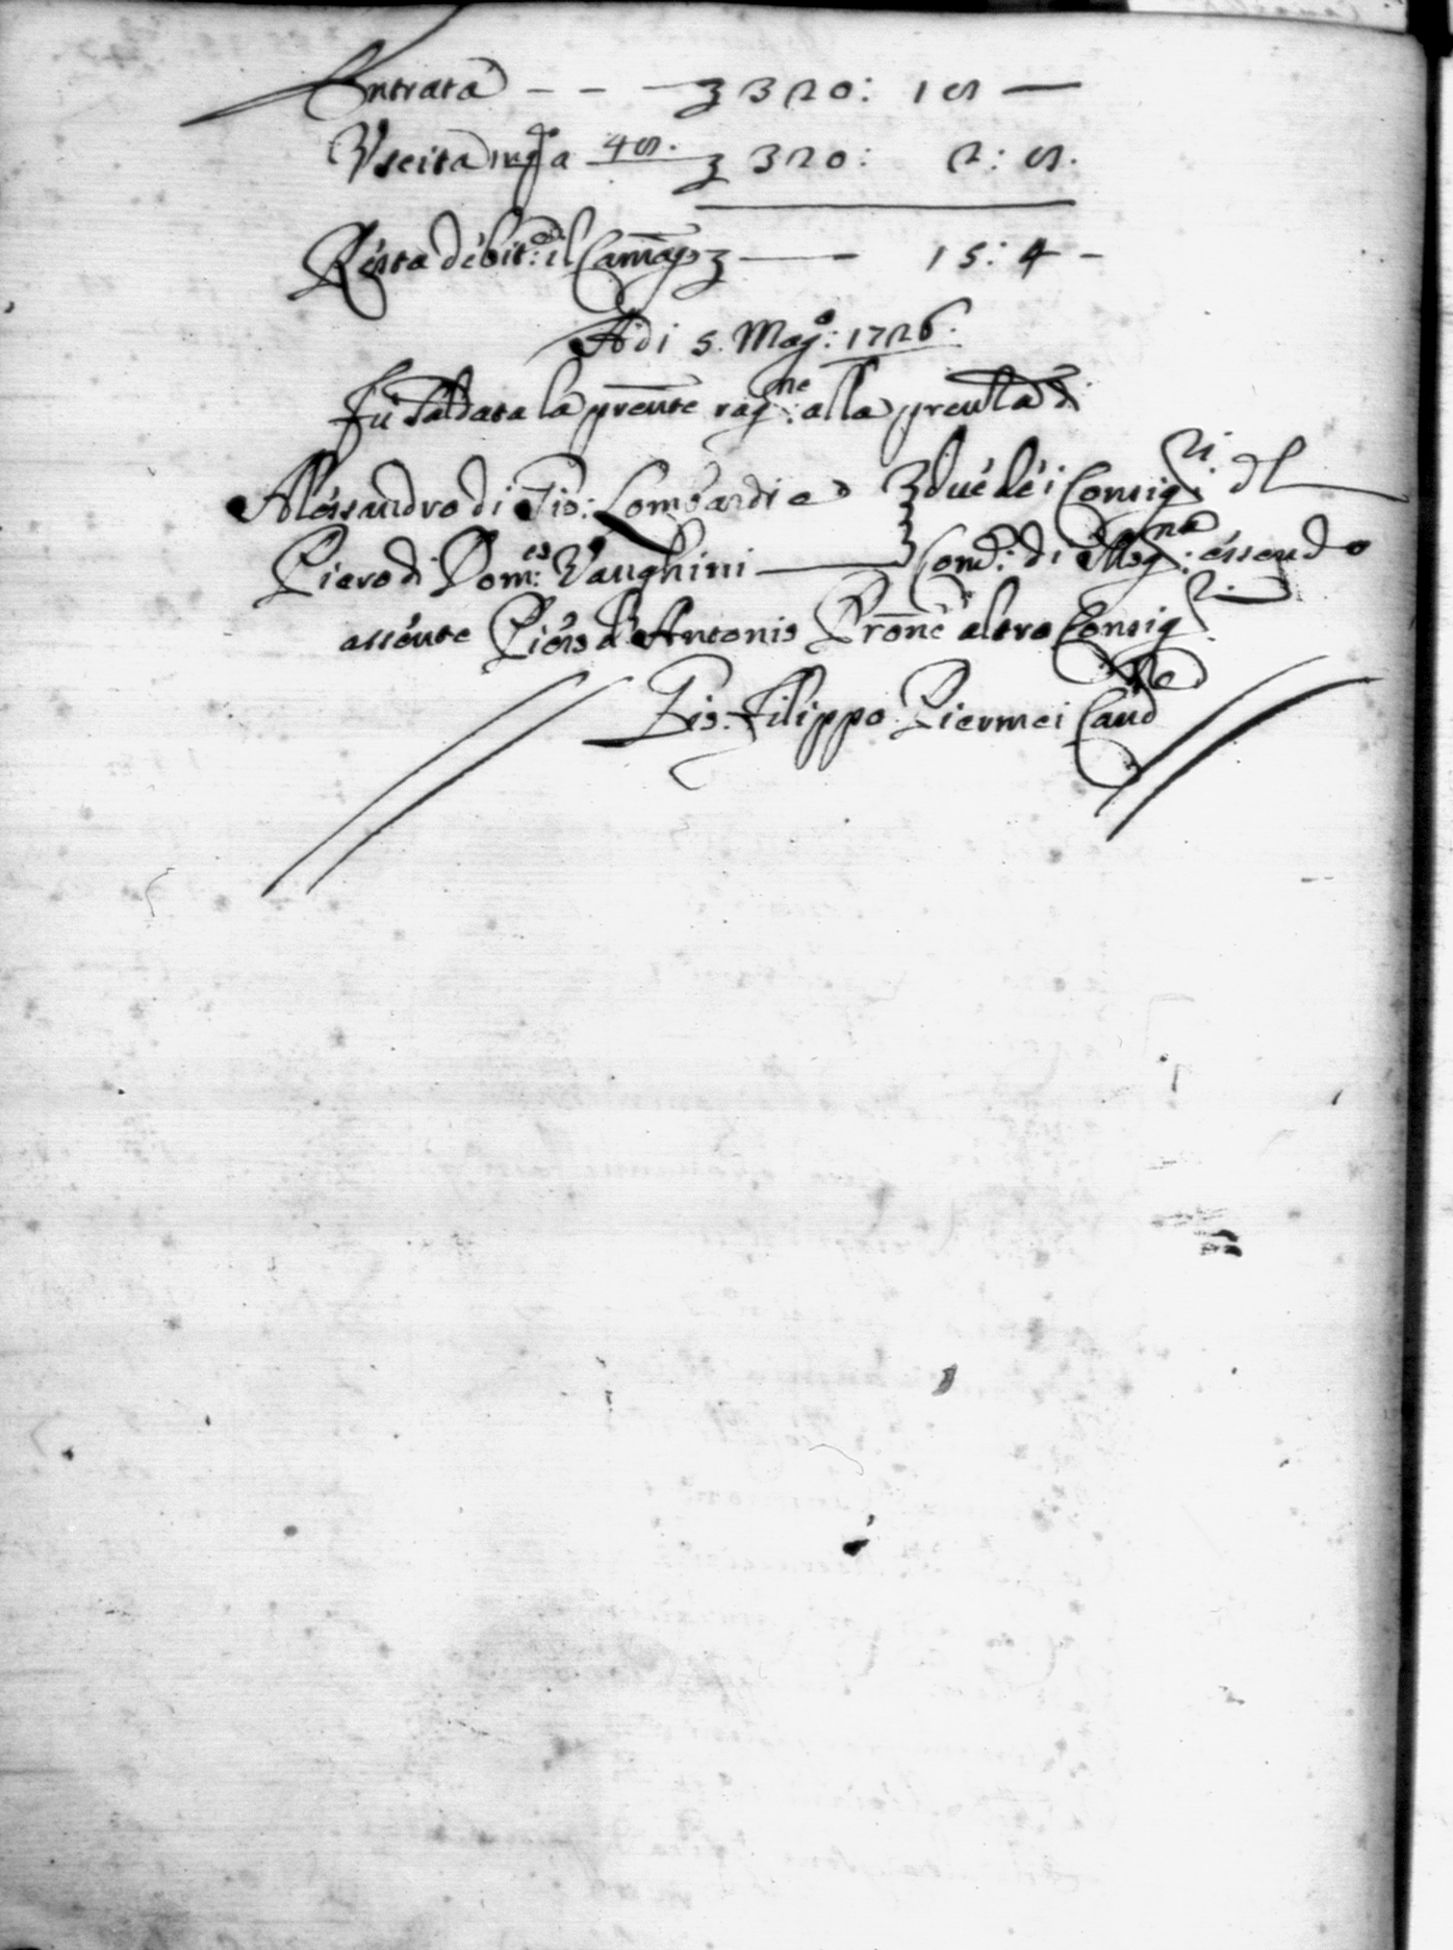 Entrata - - - 320: 18 —
Vscita in q.a 48. 320: 2: 8.
Resta debit: il Cam.go — 15: 4 -
Adi 5. Mag.o: 1726.
Fu saldata la prente rag.ne: alla prenza di
Alessandro di Gio: Lombardi e due de i Consig.ri dl
Piero di Dom.co: Vanghini — Com.: di : essendo
assente Piero d'Antonio altro Consig.
Gio: Filippo Piermei Canc.re